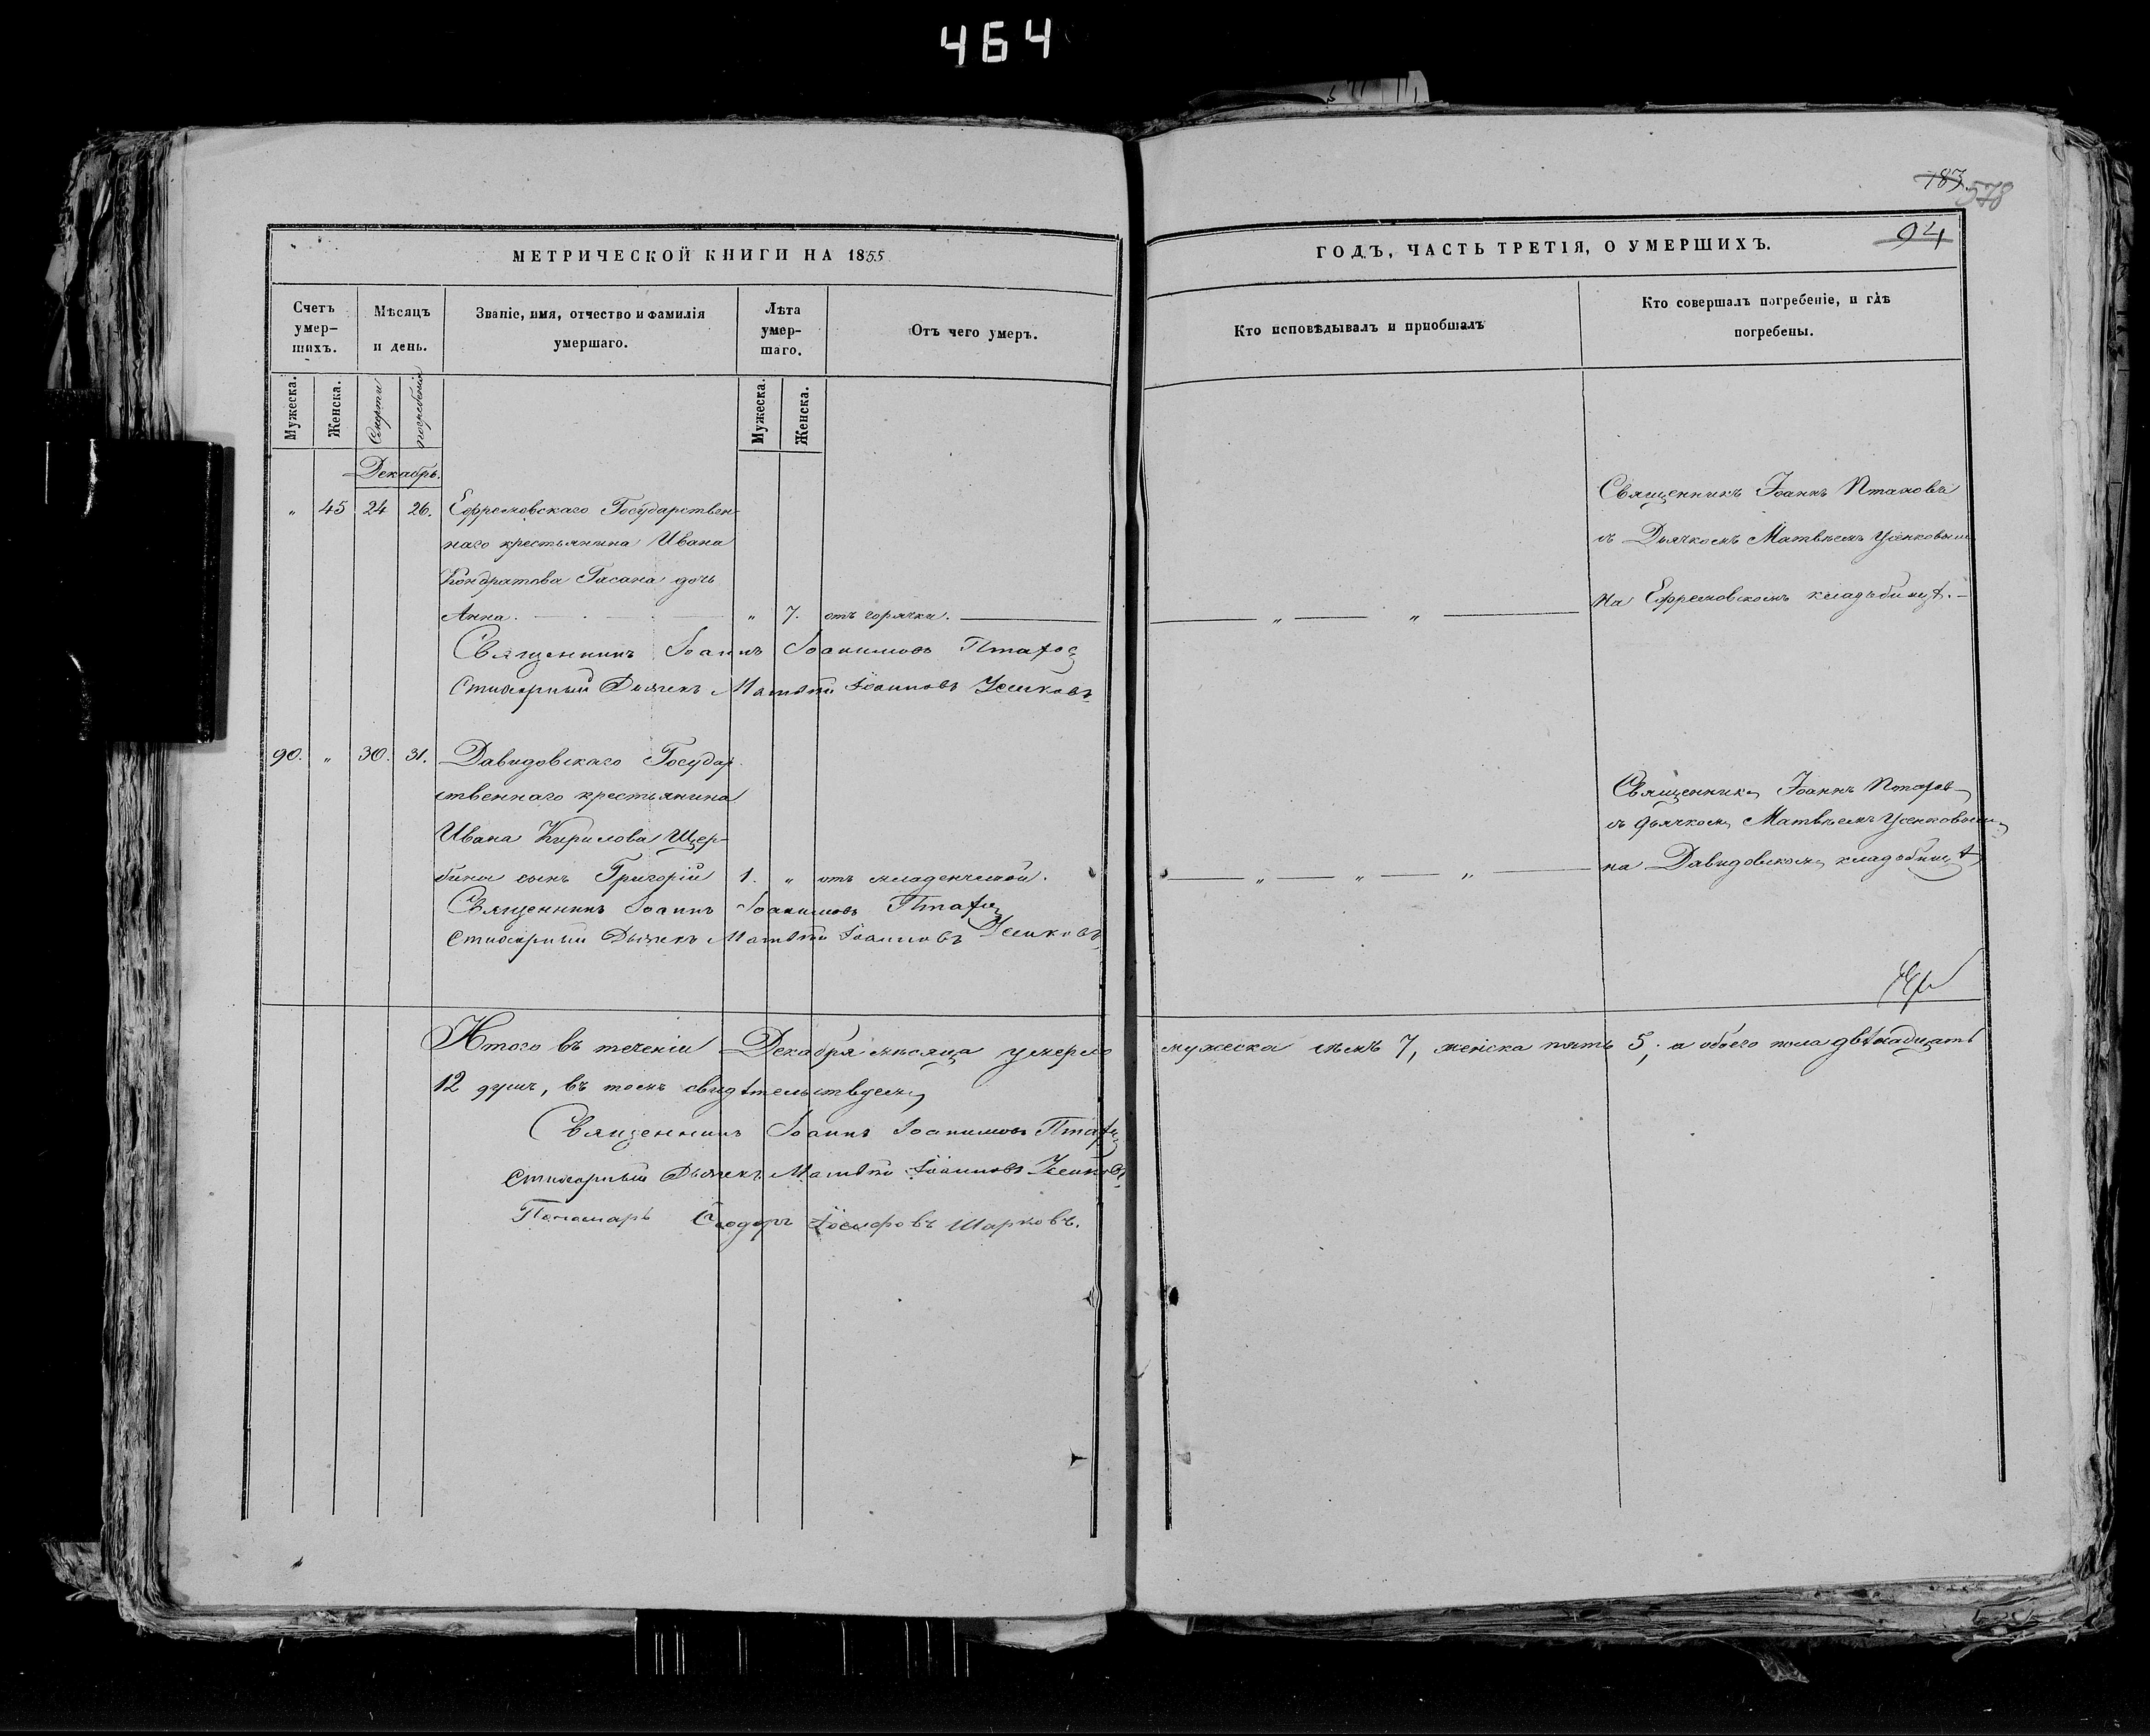 464
183
578
94
МЕТРИЧЕСКОЙ КНИГИ НА 1855
ГОДЪ, ЧАСТЬ ТРЕТІЯ, О УМЕРШИХЪ.
Счетъ умер-шихъ.
Мѣсяцъ и день.
Званіе, имя, отчество и фамилія умершаго.
Лѣта умер-шаго.
Отъ чего умеръ.
Кто исповѣдывалъ и пріобщалъ
Кто совершалъ погребеніе, и гдѣ погребены.
Мужеска.
Женска.
Смерти
погребенія
Мужеска.
Женска.
Декабрь.
" 45 24 26. Ефремовскаго Государствен-
наго крестьянина Ивана
Кондратова Гасана дочь
Анна. " 7. отъ горячки. " "
Священникъ Іоаннъ Птаховъ
съ Дьячкомъ Матвѣемъ Усенковымъ
на Ефремовскомъ кладъбищѣ.
Священникъ Іоаннъ Іоакимовъ
Стихарный Дьячекъ Матвѣй Іоанновъ Усенковъ
90. " 30. 31. Давидовскаго Государ-
ственнаго крестьянина
Ивана Кирилова Щер-
бины сынъ Григорій 1. " отъ младенческой. " " "
Священникъ Іоаннъ
съ дьячкомъ Матвѣемъ Усенковымъ
на Давидовскомъ кладъбищѣ
Священникъ Іоаннъ Іоакимовъ
Стихарный Дьячекъ Матвѣй Іоанновъ Усенковъ
Итого въ теченіи Декабря мѣсяца умерло мужеска семь 7, женска пять 5; а обоего пола двѣнадцать
12 душъ, въ томъ свидѣтельствуемъ
Священникъ Іоаннъ Іоакимовъ
Стихарный Дьячекъ Матвѣй Іоанновъ Усенковъ
Пономарь Ѳеодоръ Іосифовъ Шарковъ.